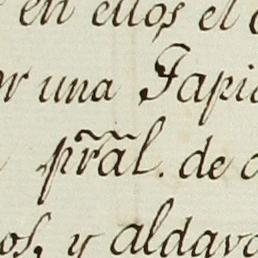 en ellos el
or una Tapi
pr̃al. de
os, y aldav